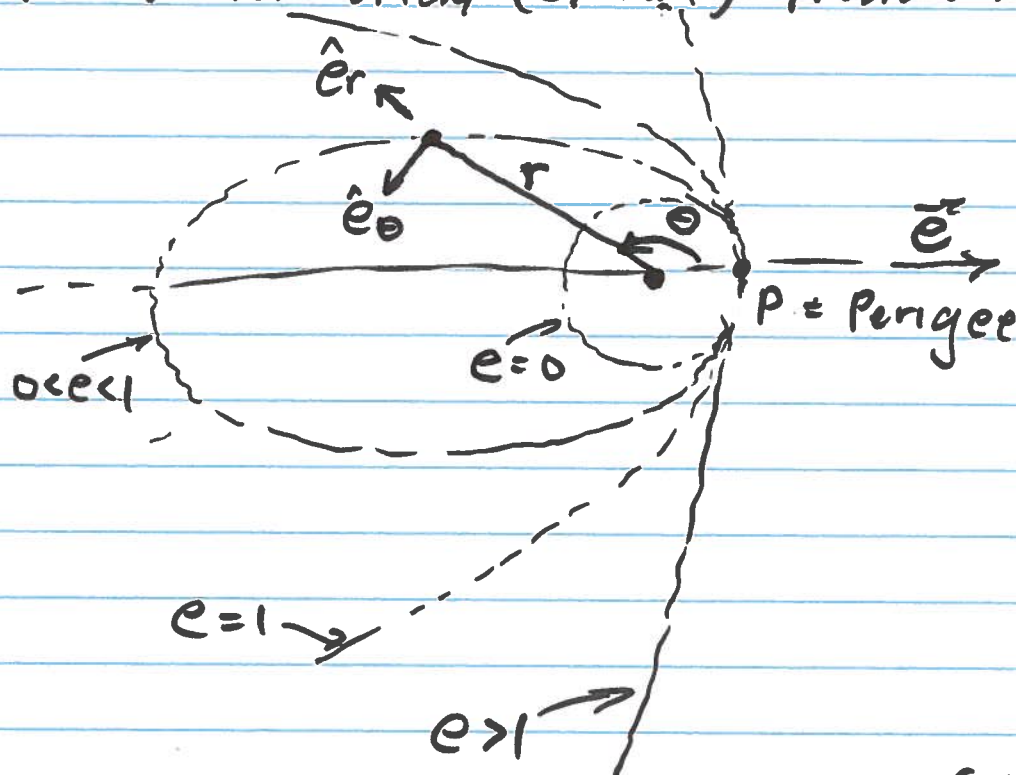 êr
r
êθ
θ
e⃗
P = Perigee
e=0
0<e<1
e=1
e>1